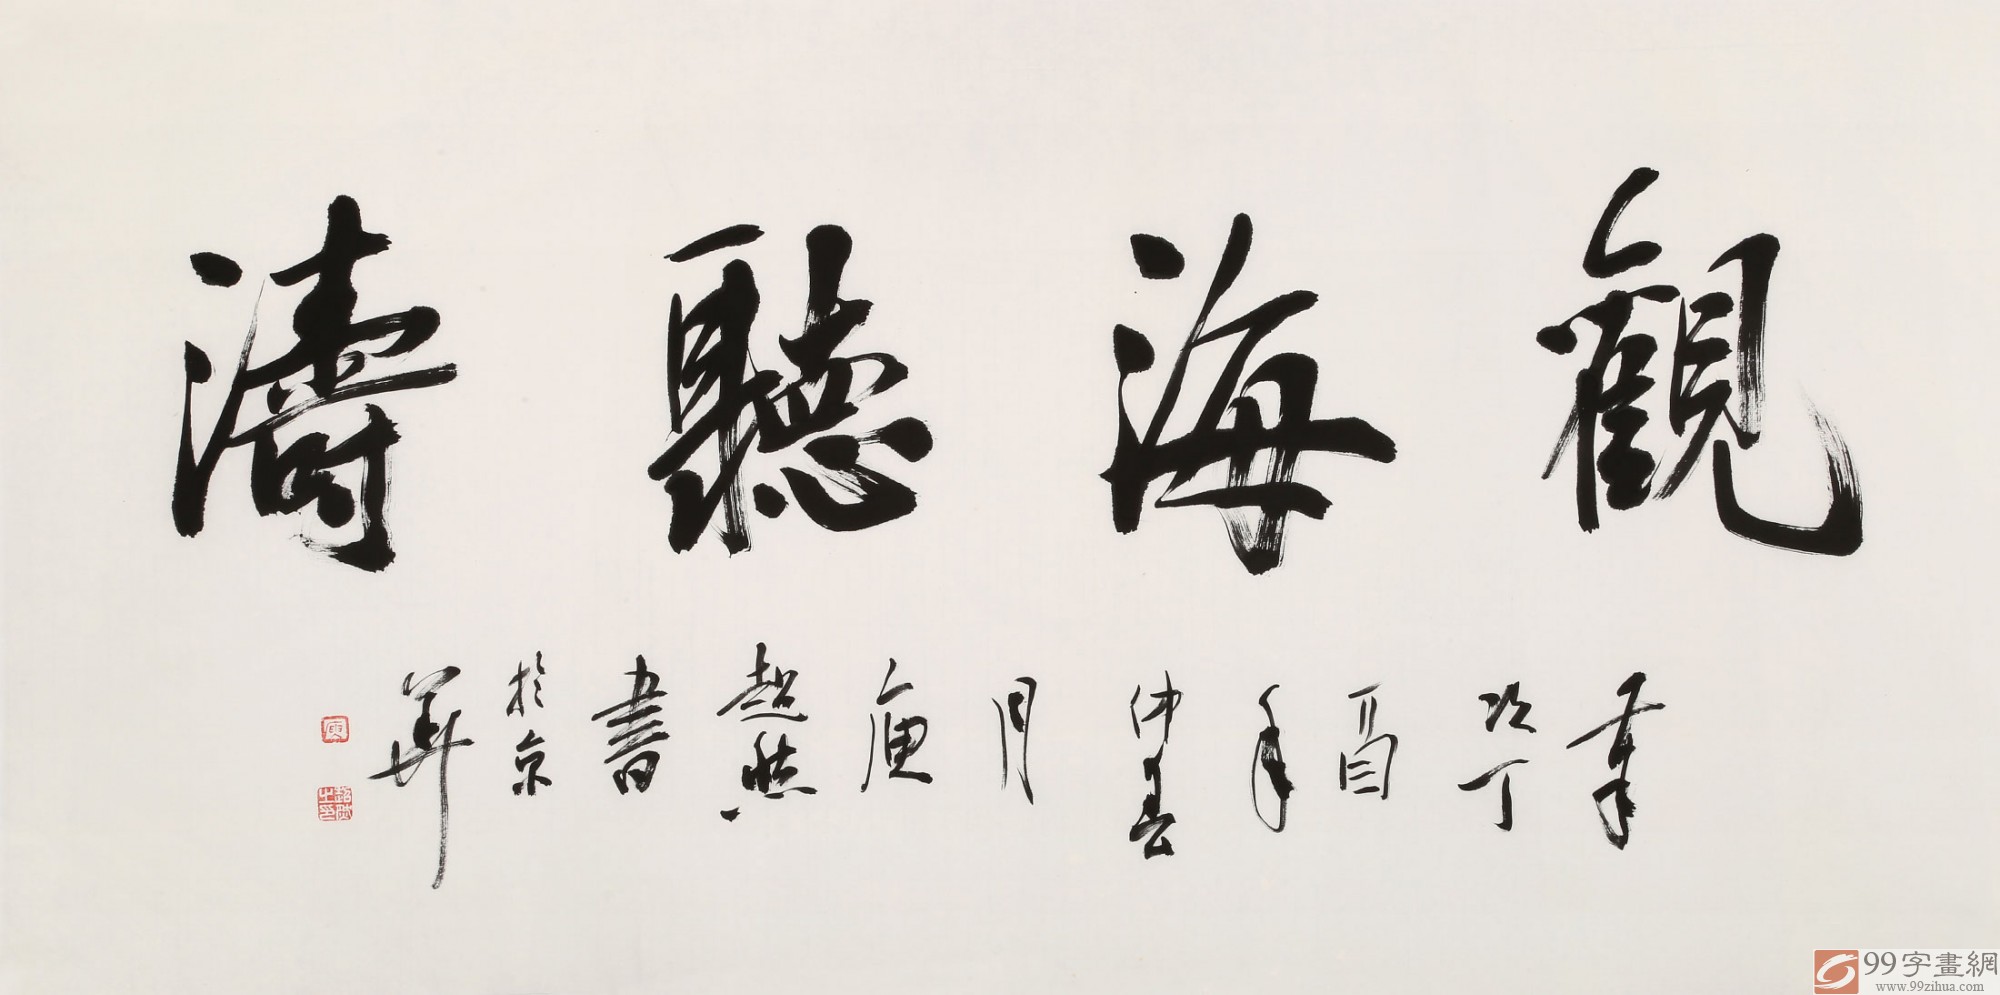 觀海聽濤
歲次丁酉年仲春月庾超然書於京華
庾
超然之印
99字畫網
www.99zihua.com